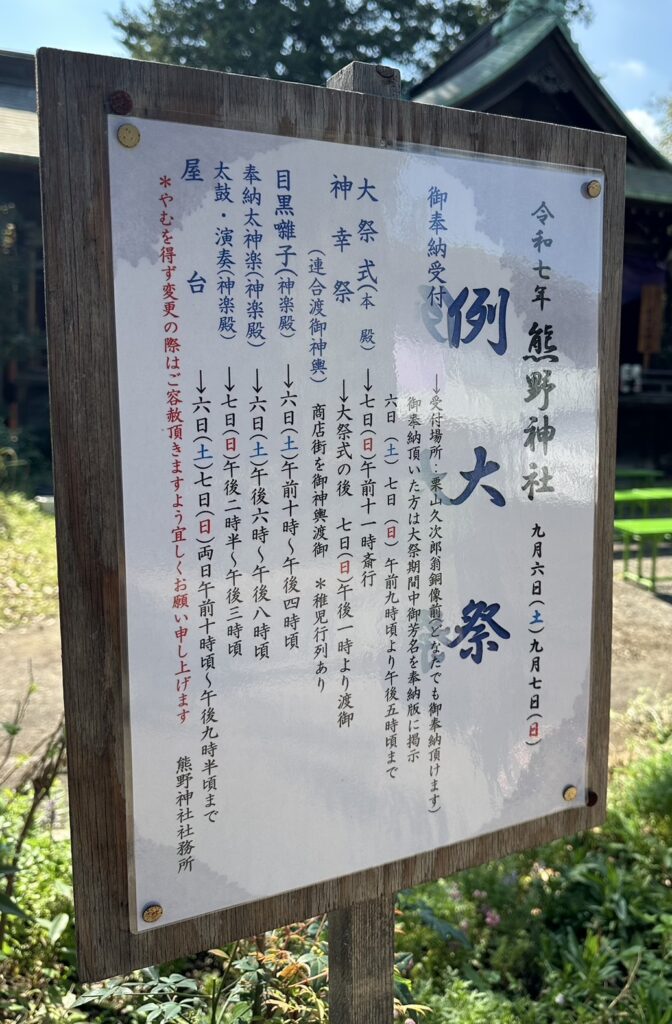 令和七年 熊野神社 九月六日(土)九月七日(日)
例大祭
御奉納受付 →受付場所：栗山久次郎翁銅像前(どなたでも御奉納頂けます)
御奉納頂いた方は大祭期間中御芳名を奉納版に掲示
六日(土)七日(日)午前九時頃より午後五時頃まで
大祭式(本殿) →七日(日)午前十一時斎行
神幸祭 →大祭式の後 七日(日)午後一時より渡御
(連合渡御神輿) 商店街を御神輿渡御 *稚児行列あり
目黒囃子(神楽殿) →六日(土)午前十時〜午後四時頃
奉納太神楽(神楽殿) →六日(土)午後六時〜午後八時頃
太鼓・演奏(神楽殿) →七日(日)午後二時半〜午後三時頃
屋台 →六日(土)七日(日)両日午前十時頃〜午後九時半頃まで
*やむを得ず変更の際はご容赦頂きますよう宜しくお願い申し上げます
熊野神社社務所